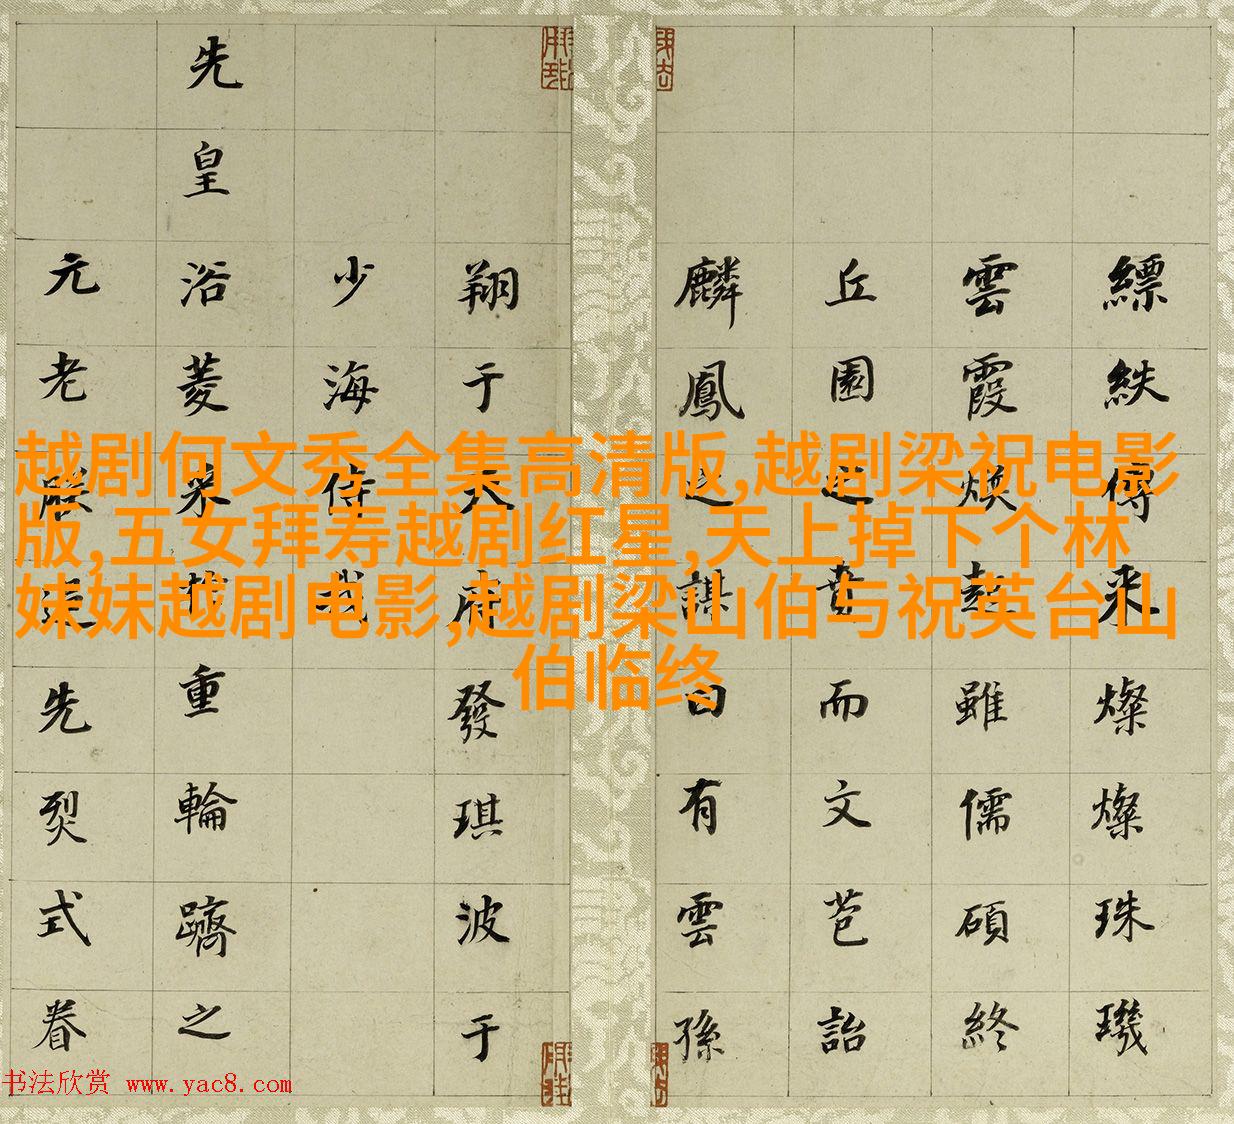 縹紩傳来燦燦珠璣
雲霞煥雖儒碩終
丘園之賁而文苞詒
麟鳳之謀曰有雲孫
翔于天府發琪波于
少海侍我
先皇浴菱采重輪躋之
元老先烈式眷
越剧何文秀全集高清版,越剧梁祝电影
版,五女拜寿越剧红星,天上掉下个林
妹妹越剧电影,越剧梁山伯与祝英台山
伯临终
书法欣赏 www.yac8.com